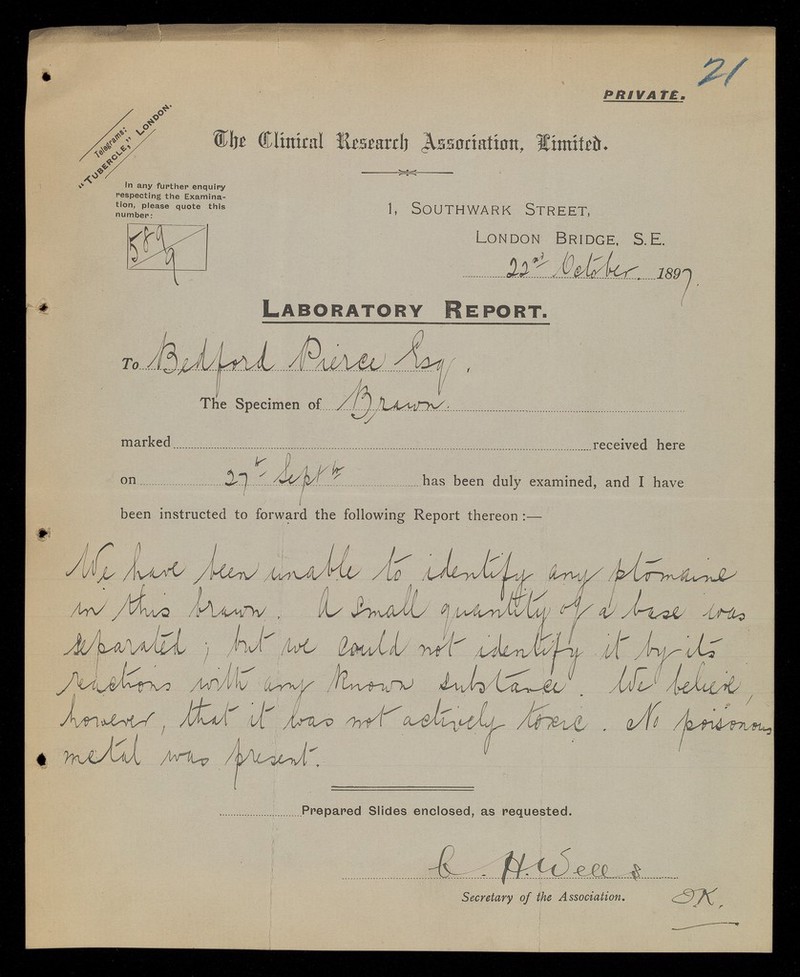 21
PRIVATE.
Telegrams:
"TUBERCLE," LONDON.
The Clinical Research Association, Limited.
In any further enquiry
respecting the Examina-
tion, please quote this
number:
589/9
1, SOUTHWARK STREET,
LONDON BRIDGE, S.E.
22nd October 1897.
LABORATORY REPORT.
To Bedford Pierce Esq.
The Specimen of Brawn.
marked received here
on 27th Septbr has been duly examined, and I have
been instructed to forward the following Report thereon :—
We have been unable to identify any ptomaine
in this brawn. A small quantity of a base was
separated ; but we could not identify it by its
reactions with any known substance. We believe,
however, that it was not actively toxic. No poisonous
metal was present.
Prepared Slides enclosed, as requested.
C. H. Wells
Secretary of the Association.